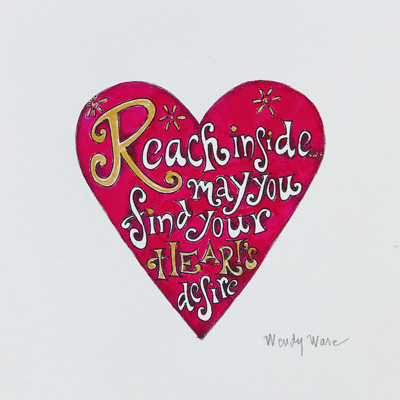 Reach inside...
may you
find your
HEART'S
desire
Wendy Ware